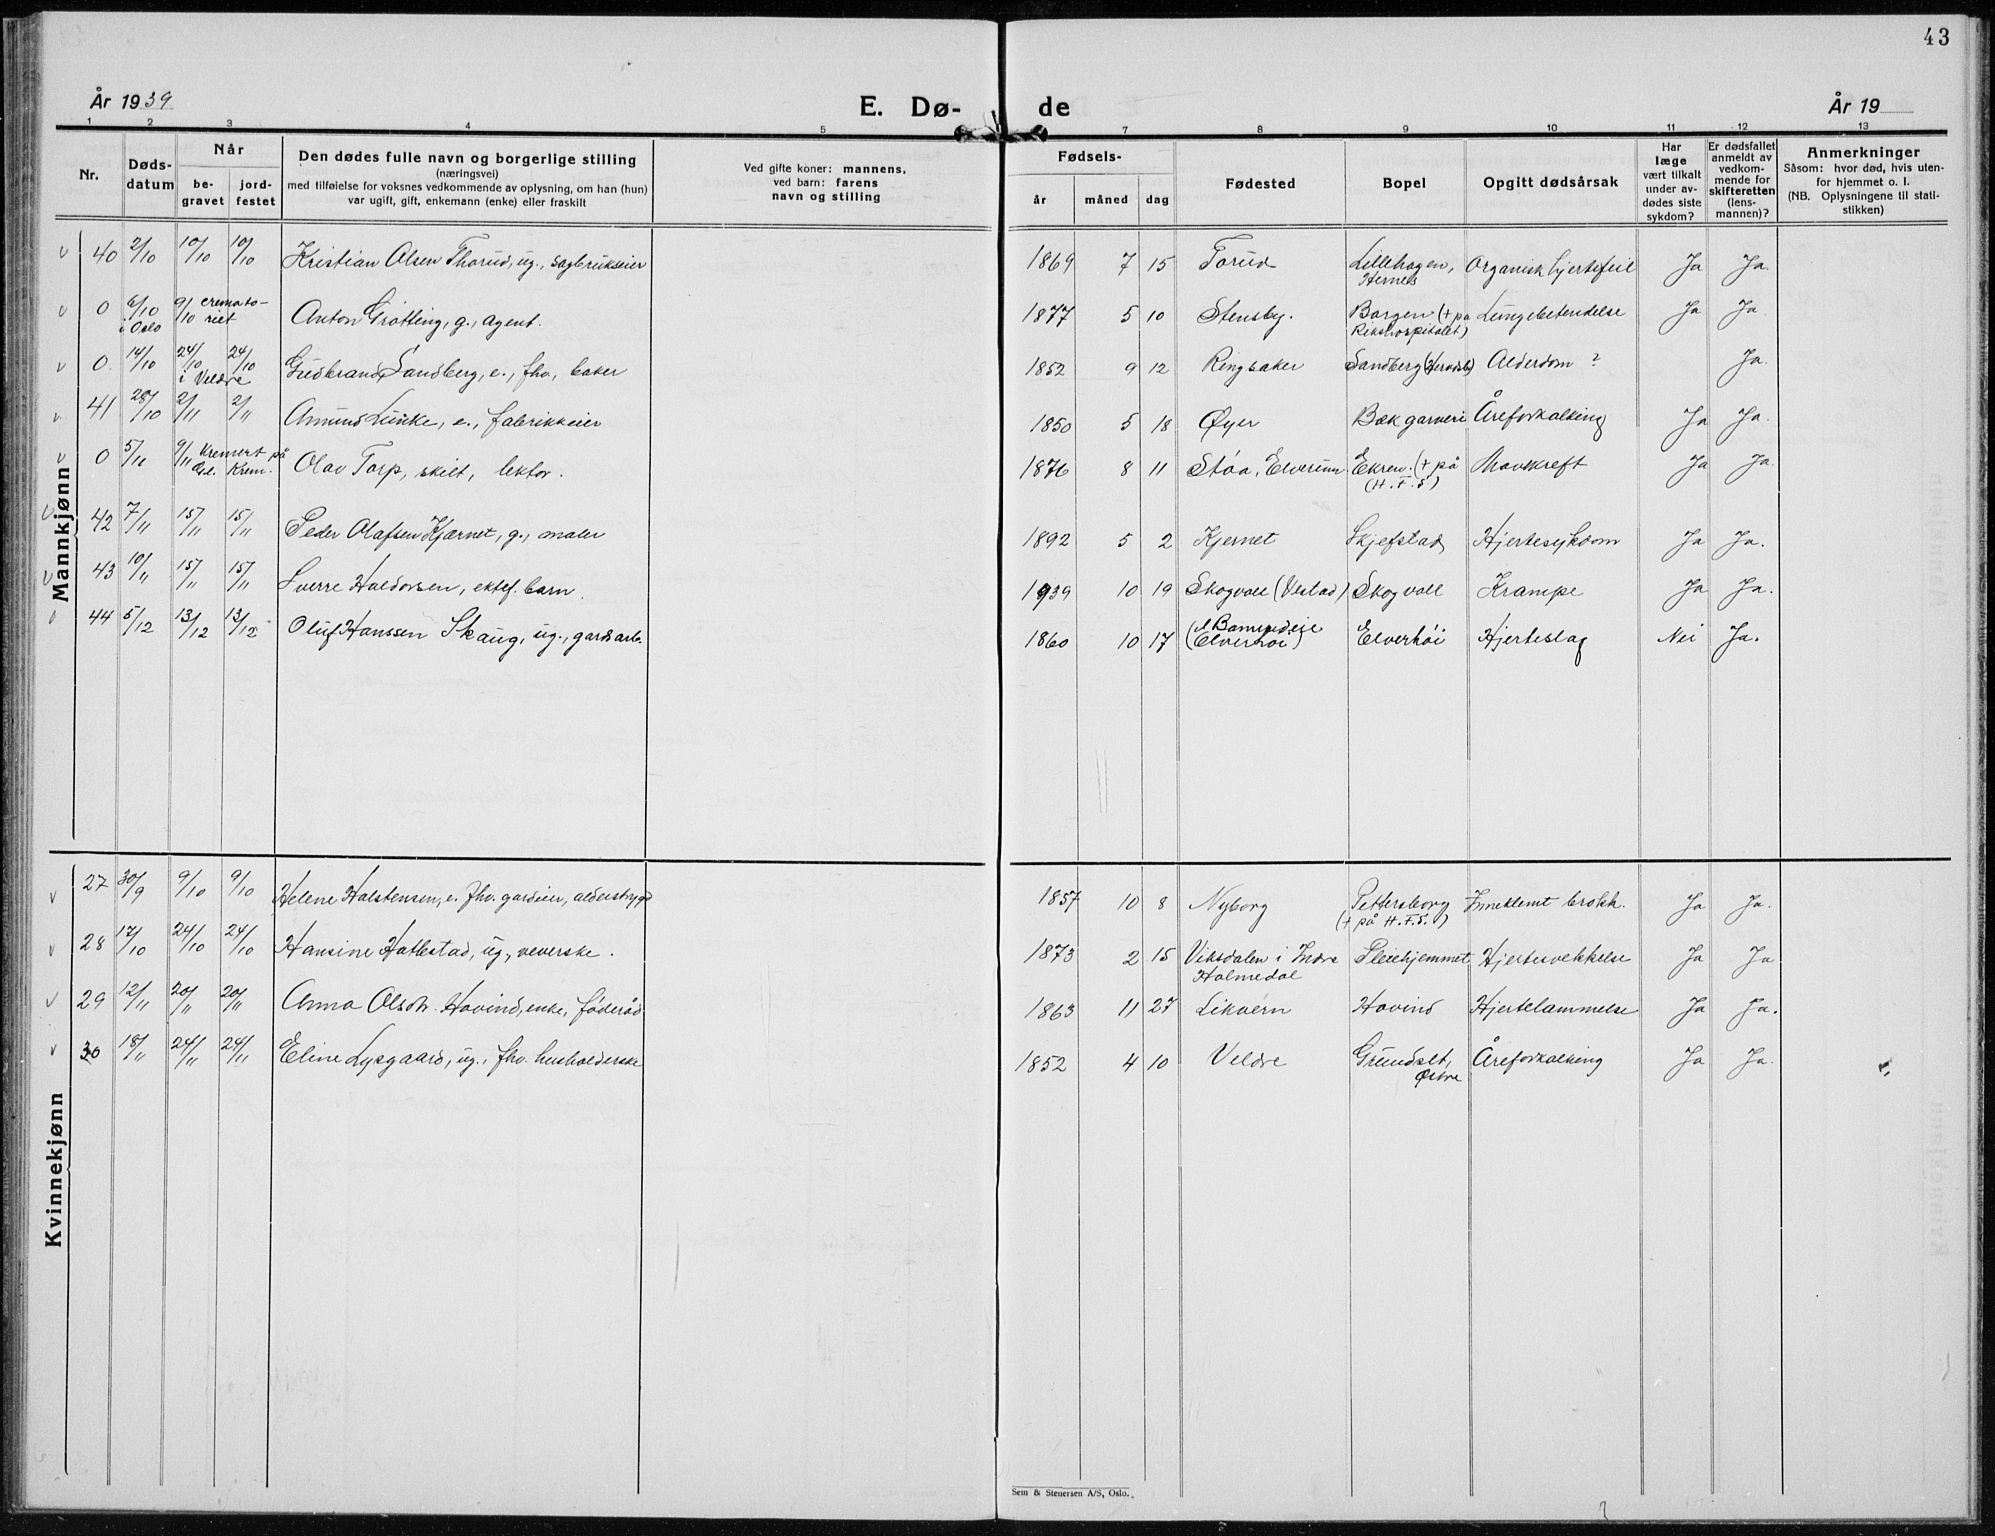 43
År 1939 E. Dø- de År 19
1 2 3 4 5 7 8 9 10 11 12 13
Nr. Døds-datum Når be-gravet jord-festet
Den dødes fulle navn og borgerlige stilling
(næringsvei)
med tilføielse for voksnes vedkommende av oplysning, om han (hun)
var ugift, gift, enkemann (enke) eller fraskilt
Ved gifte koner: mannens,
ved barn: farens
navn og stilling
Fødsels- år måned dag
Fødested Bopel Opgitt dødsårsak
Har læge vært tilkalt under av-dødes siste sykdom?
Er dødsfallet anmeldt av vedkom-mende for skifteretten (lens-mannen)?
Anmerkninger
Såsom: hvor død, hvis uten-
for hjemmet o. l.
(NB. Oplysningene til stati-
stikken)
Mannkjønn
40 2/10 10/10 10/10 Kristian Olsen Thorud, ug., sagbrukseier 1869 7 15 Torud Lillehagen, Hernes Organisk hjertefeil Ja Ja.
0 6/10 i Oslo 9/10 cremato-riet Anton Grøtting, g., agent. 1877 5 10 Stensby. Borgen (+ på Rikshospitalet) Lungebetendelse Ja Ja.
0. 14/10 24/10 24/10 i Veldre Gudbrand Sandberg, e., fhv. baker 1852 9 12 Ringsaker Sandberg Alderdom ? Ja.
41 28/10 2/11 2/11 Amund Lunke, e., fabrikkeier 1850 5 18 Øyer Bæk garveri Åreforkalking Ja Ja.
0 5/11 9/11 Kremert på Krem. Olav Torp, skilt, lektor. 1876 8 11 Støa, Elverum Ekren. (+ på (H.F.S) Mavekreft Ja Ja.
42 7/11 15/11 15/11 Peder Olafsen Kjærnet, g., maler 1892 5 2 Kjernet Skjefstad Hjertesykdom Ja Ja.
43 10/11 15/11 15/11 Sverre Haldorsen, ektef. barn. 1939 10 19 Skogvoll (Vestad) Skogvoll Krampe Ja Ja.
44 5/12 13/12 13/12 Oluf Hanssen Skaug, ug., gardsarb. 1860 10 17 (Elverhøi) Elverhöi Hjerteslag Nei Ja.
Kvinnekjønn
27 30/9 9/10 9/10 Helene Halstensen, e. fhv. gardeier, alderstrygd 1857 10 8 Nyborg Pettersborg (+ på H.F.S.) Inneklemt brokk. Ja Ja.
28 17/10 24/10 24/10 Hansine Hatlestad, ug., veverske. 1873 2 15 Viksdalen i Indre Holmedal Pleiehjemmet Hjertesvekkelse Ja Ja
29 12/11 20/11 20/11 Anna Olsdtr. Hovind, enke, føderåd 1863 11 27 Likvern Hovind Hjertelammelse Ja Ja.
30 18/11 24/11 24/11 Eline Lysgaard, ug., fhv. husholderske 1852 4 10 Veldre Grundset, Østre Åreforkalking Ja Ja.
Sem & Stenersen A/S, Oslo.